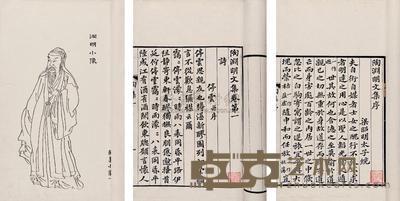 淵明小像
陶淵明文集卷第一
詩
停雲并序
停雲思親友也罇湛新醪園列初榮願
言不從歎息彌襟云爾
靄靄停雲濛濛時雨八表同昏平路伊
阻靜寄東軒春醪獨撫良朋悠邈搔首
延佇停雲靄靄時雨濛濛八表同昏平
陸成江有酒有酒閒飲東窗願言懷人
陶淵明文集序
梁昭明太子統
夫自衒自媒者士女之醜行不忮不求
者明達之用心是以聖人韜光賢人遁
世其故何也含德之至莫逾於道
親己之切無重於身故道存而身安道
亡而身害處百齡之內居一世之中倏
忽比之白駒寄寓謂之逆旅宜乎與大
塊而榮枯隨中和而任放